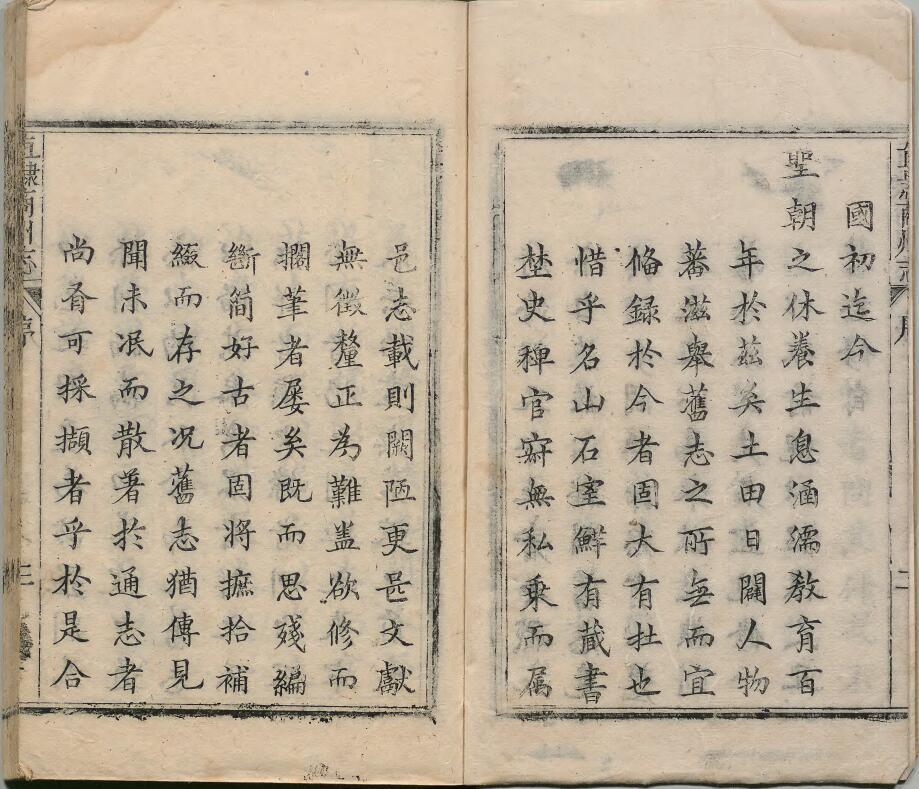 國初迄今
聖朝之休養生息涵濡教育百
年於茲矣土田日闢人物
蕃滋舉舊志之所無而宜
俻録於今者固大有在也
惜乎名山石室鮮有藏書
埜史稗官窾無私乗而属
邑志載則闕陋更甚文獻
無徴釐正為難盖欲修而
擱筆者屡矣既而思殘編
斷简好古者固将摭拾補
綴而存之况舊志猶傳見
聞未泯而散著扵通志者
尚有可採擷者乎扵是合
直隷商州志
序
二
三